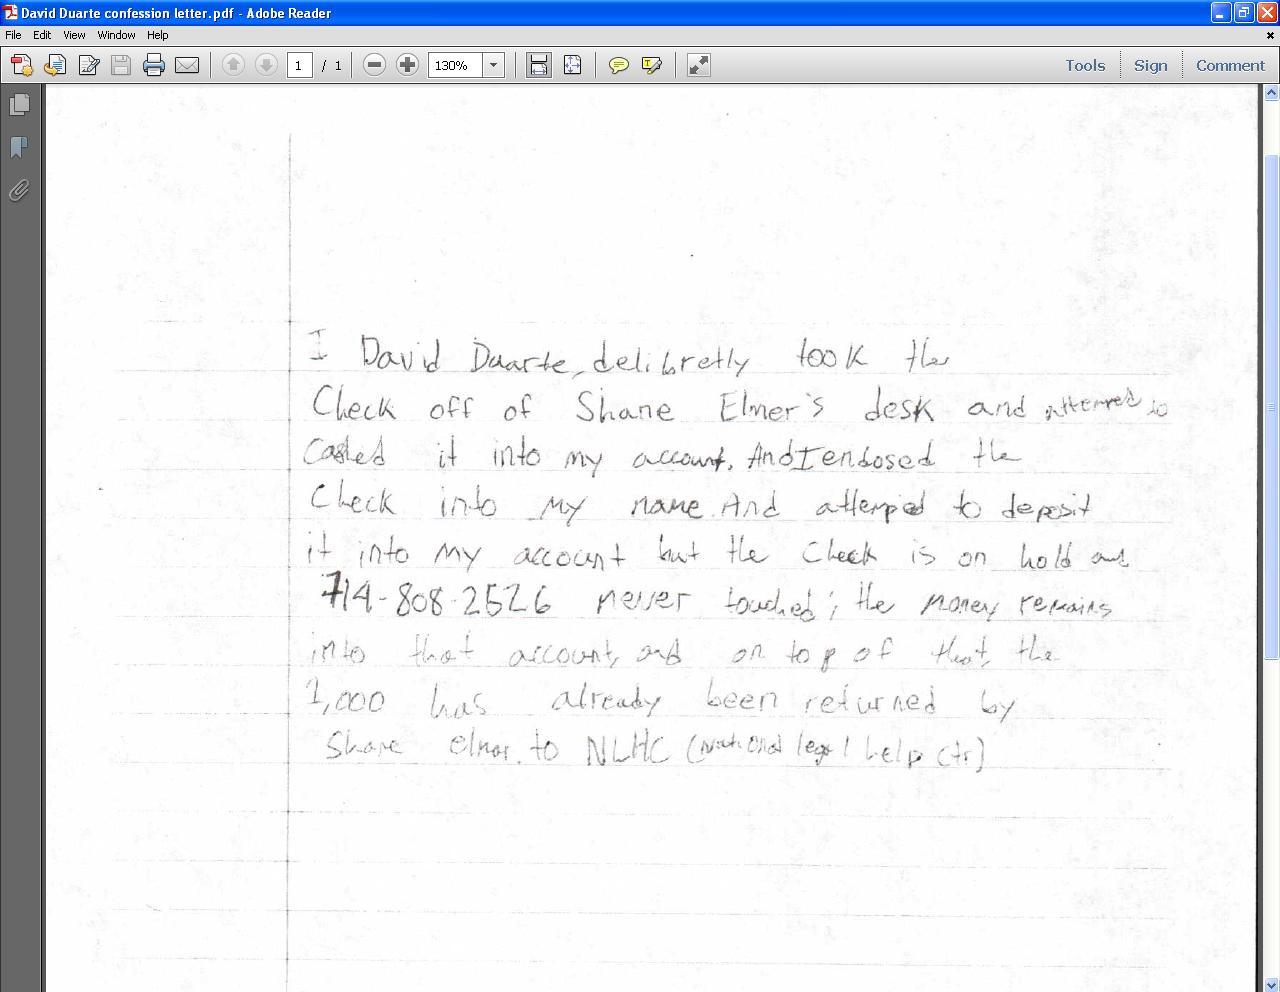 David Duarte confession letter.pdf - Adobe Reader
File Edit View Window Help
1 / 1 130% Tools Sign Comment
I David Duarte, delibretly took the
Check off of Shane Elmer's desk and attempted to
cashed it into my account. And I endosed the
Check into my name And attempted to deposit
it into my account but the check is on hold and
714-808-2526 never touched; the money remains
into that account, and on top of that, the
1,000 has already been returned by
Shane elmer. to NLHC (National legal help ctr)